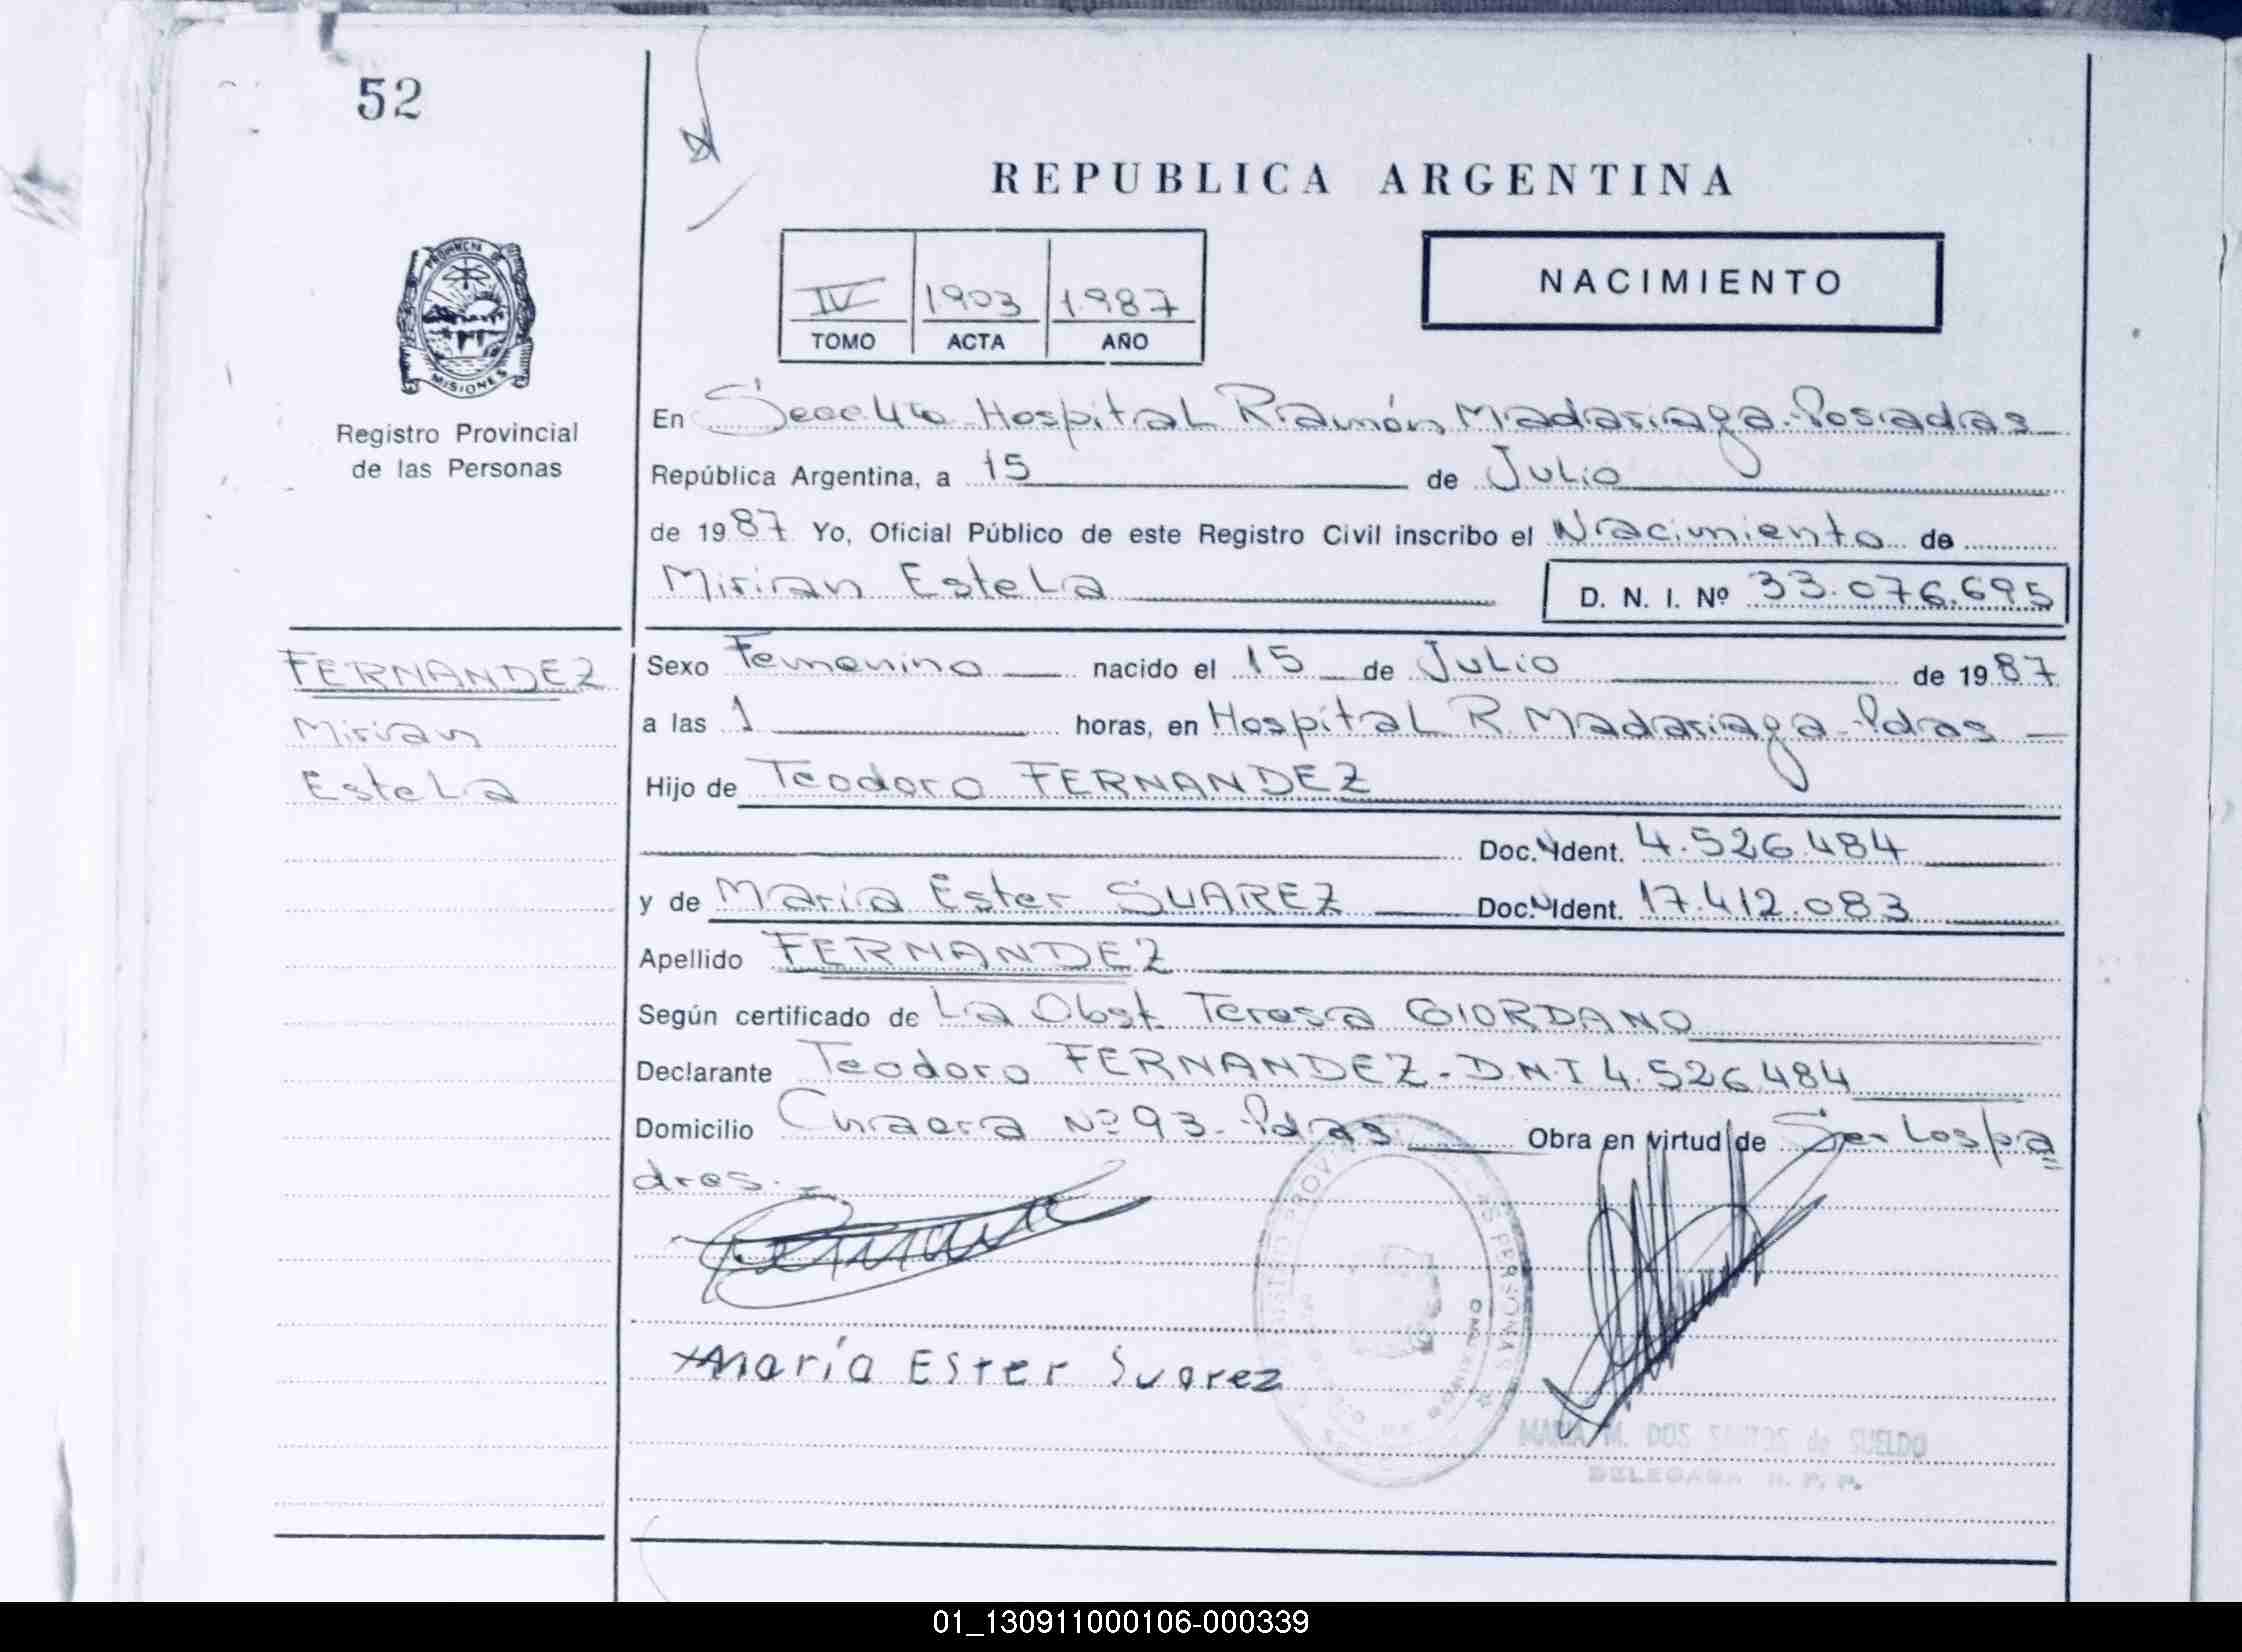 52
REPUBLICA ARGENTINA
PROVINCIA DE
MISIONES
Registro Provincial
de las Personas
IV 1903 1.987
TOMO ACTA AÑO
NACIMIENTO
En Secc. 4ta Hospital Ramón Madariaga - Posadas
República Argentina, a 15 de Julio
de 1987 Yo, Oficial Público de este Registro Civil inscribo el Nacimiento de
Mirian Estela D. N. I. Nº 33.076.695
FERNANDEZ
Mirian
Estela
Sexo Femenino nacido el 15 de Julio de 1987
a las 1 horas, en Hospital R Madariaga - Pdas
Hijo de Teodoro FERNANDEZ
Doc. Ident. 4.526.484
y de María Ester SUAREZ Doc. Ident. 17.412.083
Apellido FERNANDEZ
Según certificado de La Obst. Teresa GIORDANO
Declarante Teodoro FERNANDEZ - D.N.I 4.526.484
Domicilio Nº 93 - Pdas Obra en virtud de Ser Los pa
dres.-
María Ester Suarez
MARIA M. DOS SANTOS de SUELDO
DELEGADA R. P. P.
01_130911000106-000339